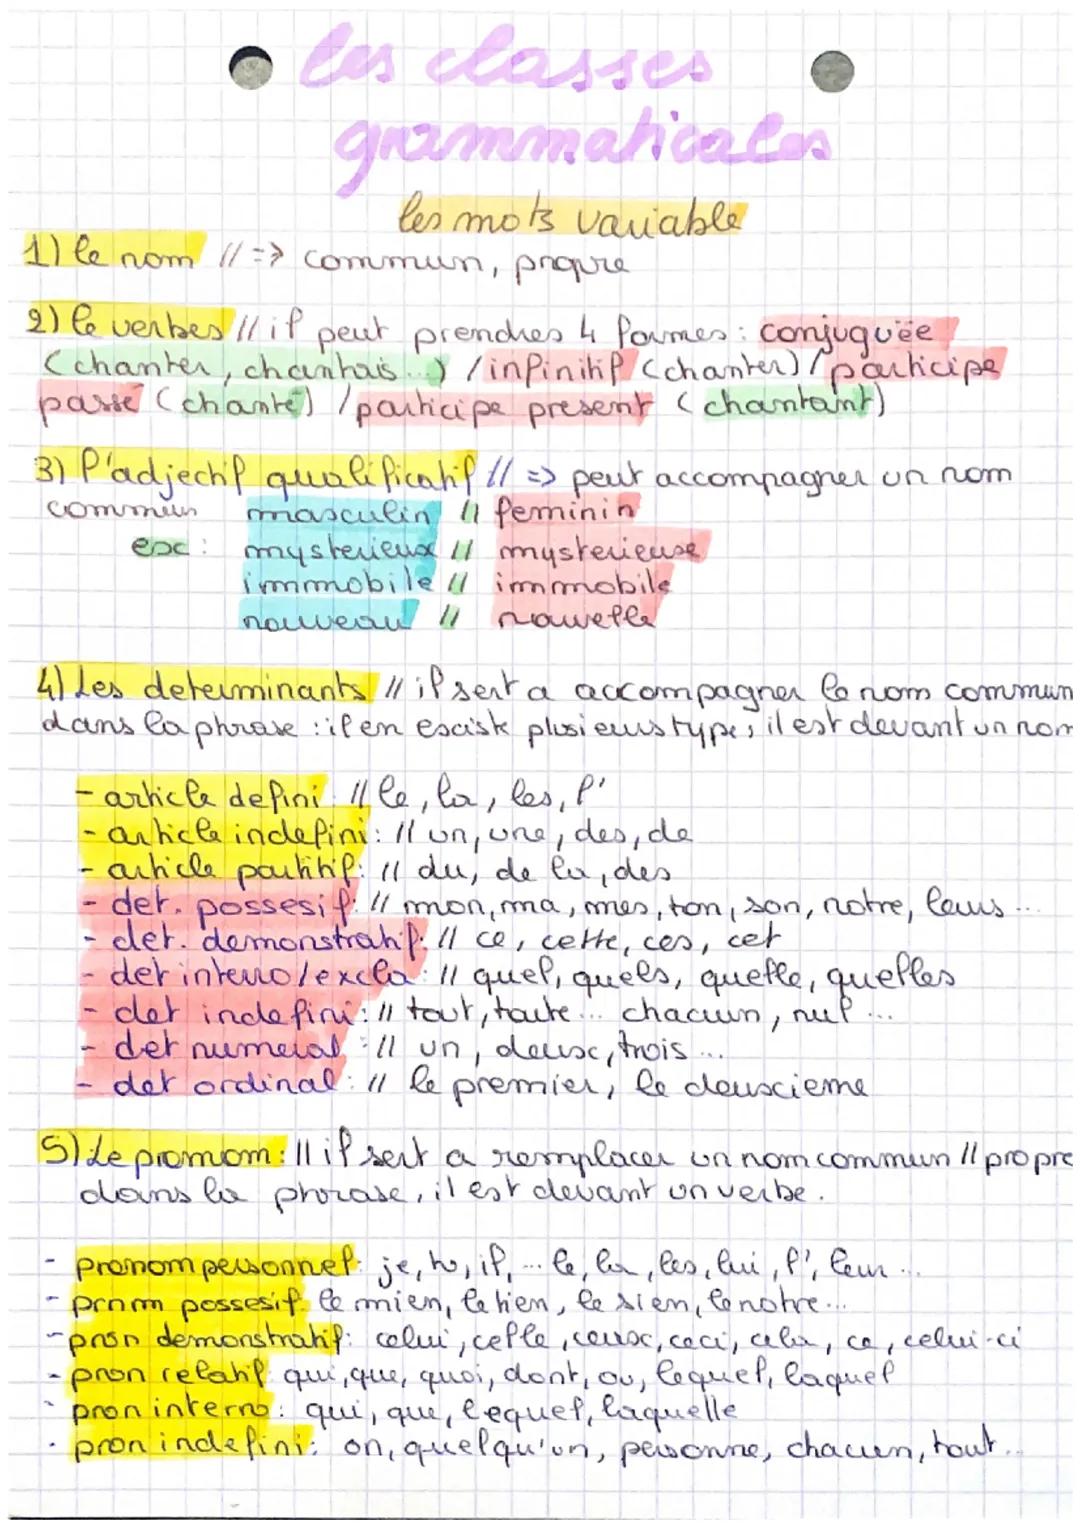 les classes
grammaticales
les mots variable
1) le nom // => commun, propre
2) le verbes // il peut prendres 4 formes : conjuguée
(chanter, chantais...) / infinitif (chanter) / participe
passé (chanté) / participe present (chantant)
3) l'adjectif qualificatif // => peut accompagner un nom
commun masculin // feminin
ex : mysterieux // mysterieuse
immobile // immobile
nouveau // nouvelle
4) Les determinants // il sert a accompagner le nom commun
dans la phrase : il en existe plusieurs type, il est devant un nom
- article defini : // le, la, les, l'
- article indefini : // un, une, des, de
- article partitif : // du, de la, des
- det. possesif : // mon, ma, mes, ton, son, notre, leurs ...
- det. demonstratif : // ce, cette, ces, cet
- det interro/excla : // quel, quels, quelle, quelles
- det indefini : // tout, toute... chacun, nul ...
- det numeral : // un, deux, trois ...
- det ordinal : // le premier, le deuxieme
5) Le pronom : // il sert a remplacer un nom commun // propre
dans la phrase, il est devant un verbe.
- pronom personnel : je, tu, il, ... le, la, les, lui, l', leur ...
- prnm possesif : le mien, le tien, le sien, le notre...
- pron demonstratif : celui, celle, ceux, ceci, cela, ce, celui-ci
- pron relatif : qui, que, quoi, dont, ou, lequel, laquel
- pron interro : qui, que, lequel, laquelle
- pron indefini : on, quelqu'un, personne, chacun, tout ...